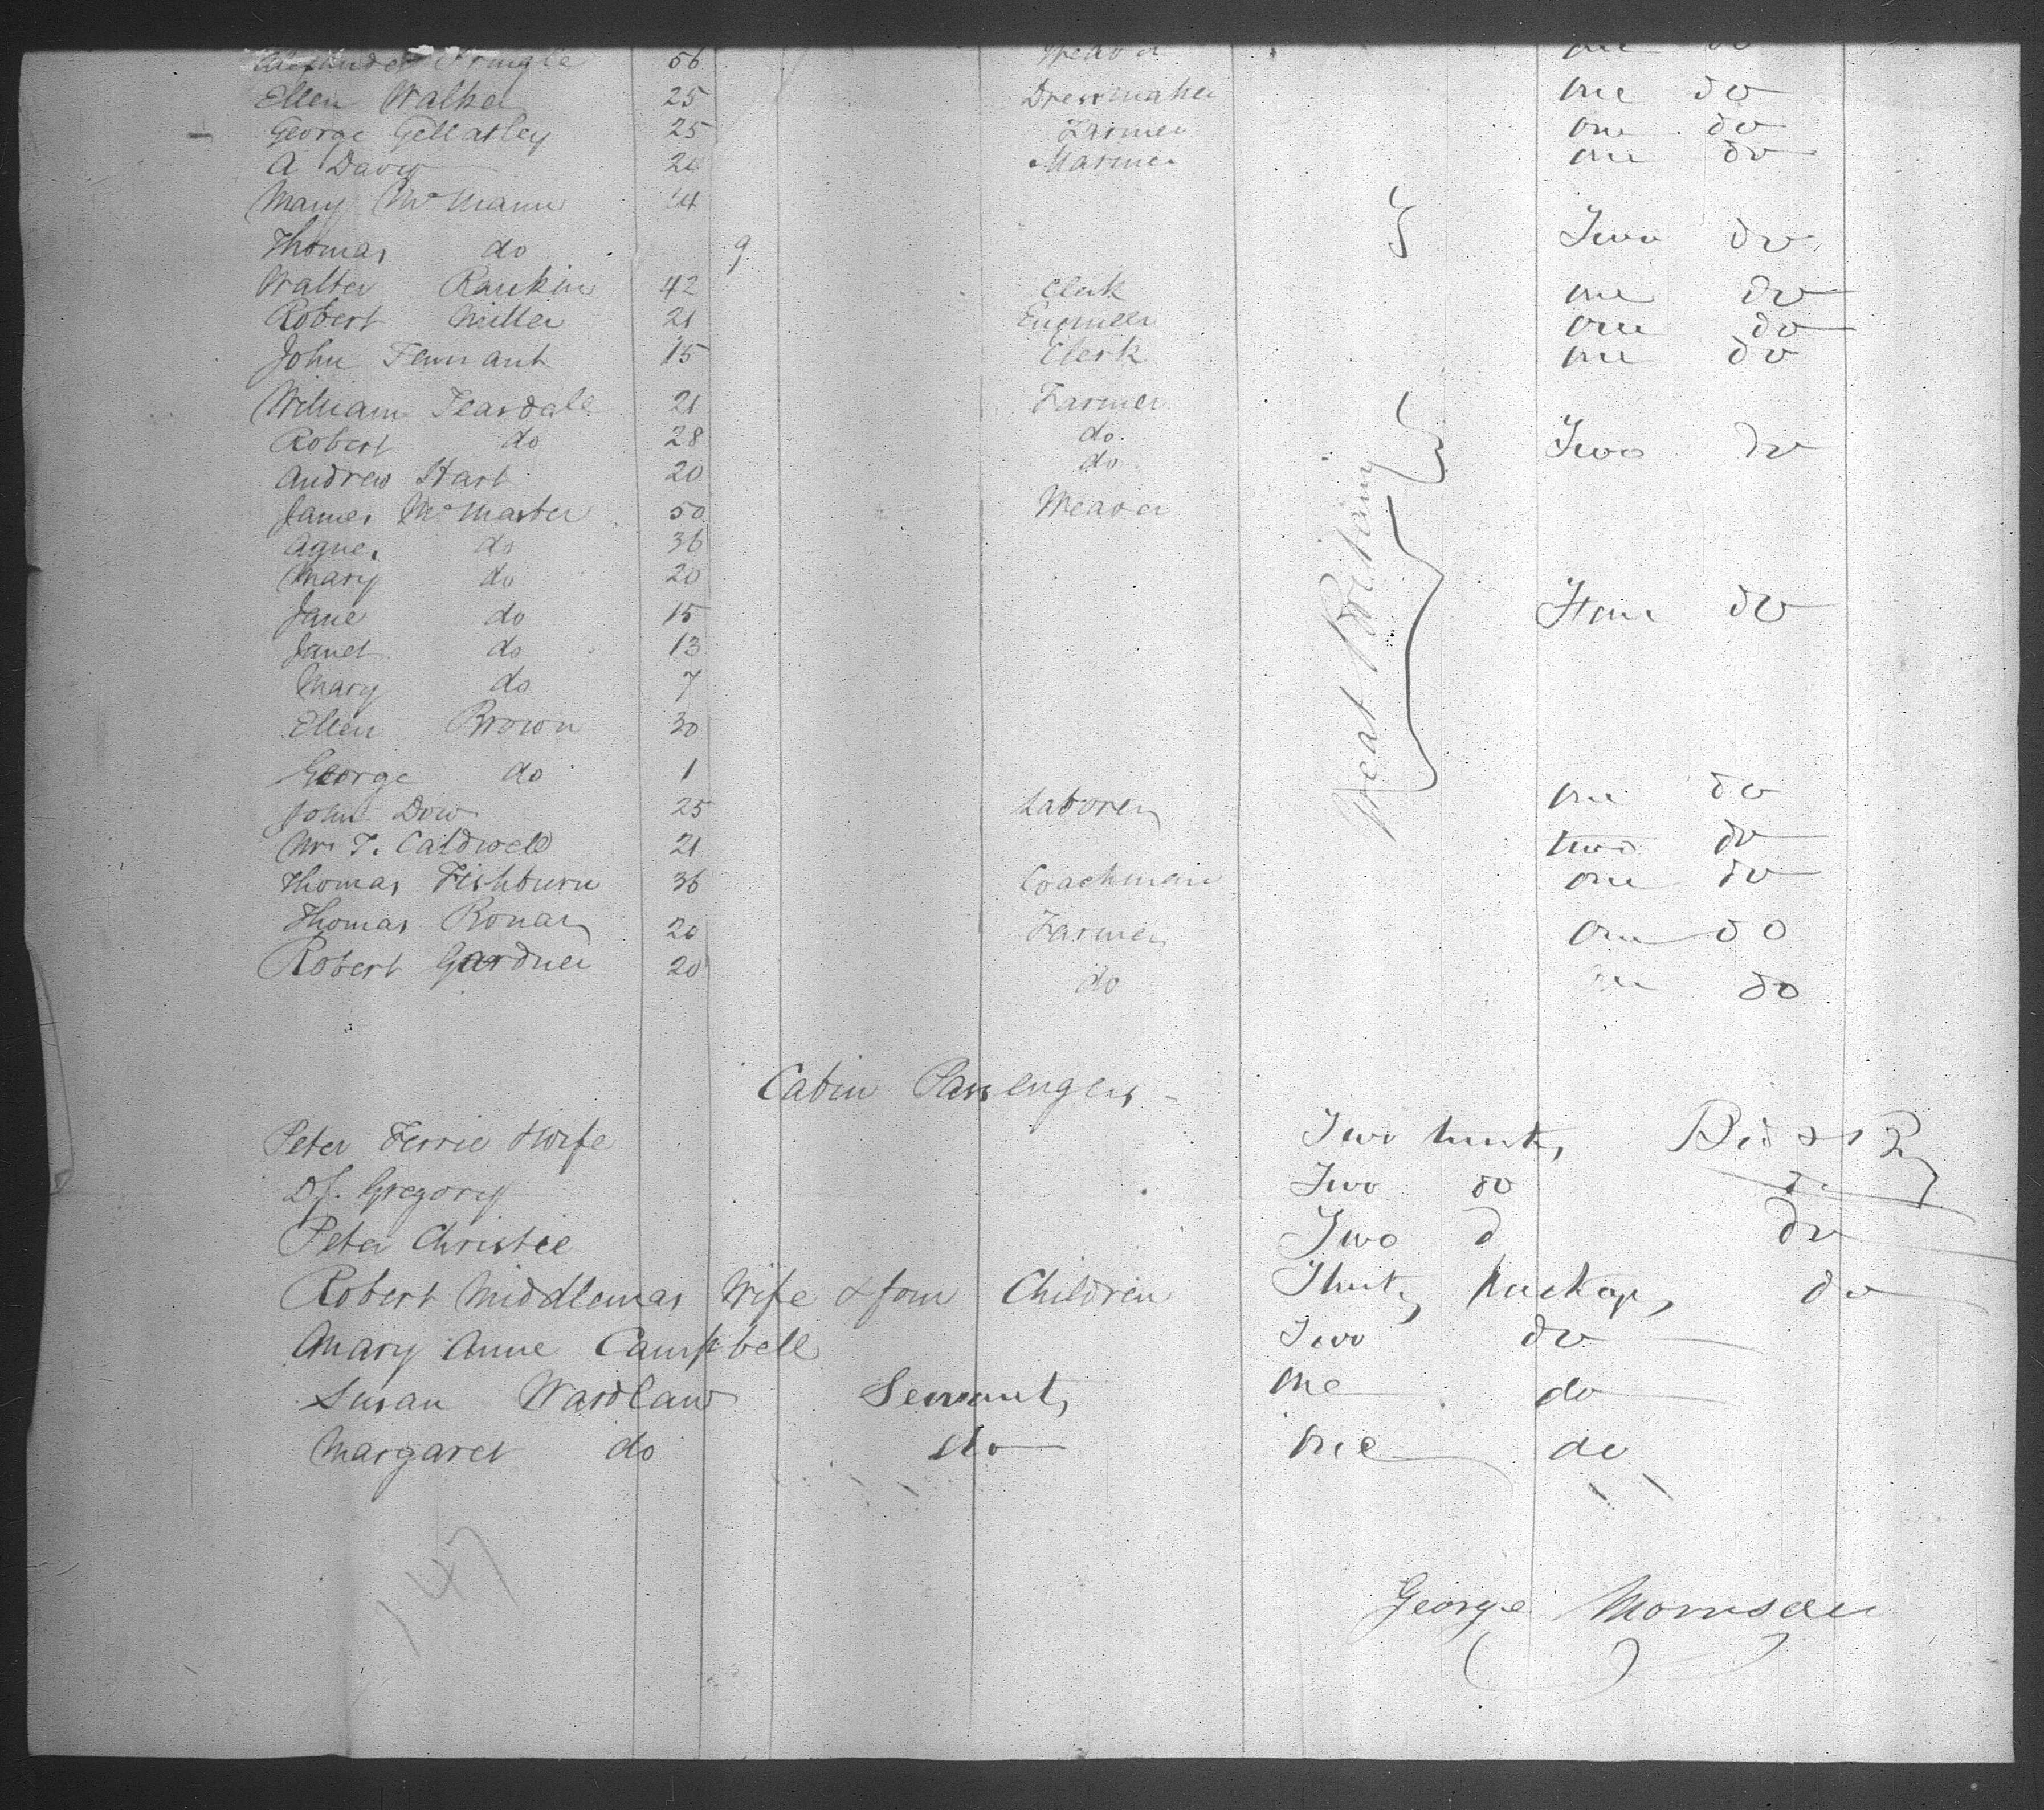 Alexander Pringle 56 Weaver one do
Ellen Walker 25 Dressmaker one do
George Gellatley 25 Farmer one do
A Davis 24 Mariner one do
Mary McMann 14
Thomas do 9 Two do
Walter Rankin 42 Clerk one do
Robert Miller 21 Engineer one do
John Tennant 15 Clerk one do
William Teasdale 21 Farmer
Robert do 28 do Two do
Andrew Hart 20 do
James McMaster 50 Weaver
Agnes do 36
Mary do 20
Jane do 15 do
Janet do 13
Mary do 7
Great Brittainy
Ellen Brown 30
George do 1
John Dow 25 Laborer one do
T. Caldwell 21 two do
Thomas Fishburn 36 Coachman one do
Thomas Ronan 20 Farmer one do
Robert Gardner 20 do one do
Cabin Passengers
Peter Ferrie & Wife Two trunks
Gregory Two do
Peter Christie Two d do
Robert Middlemas Wife & four Children do
Mary Anne Campbell Two do
Susan Wardlaw Servant, one do
Margaret do do one do
147
George Morrison